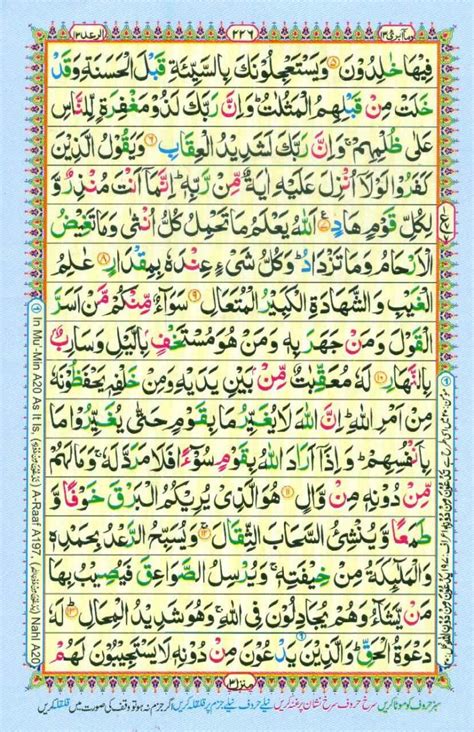 الرعد ١٣ ٢٢٦ وما ابرئ ١٣
فِيْهَا خٰلِدُوْنَ ۝٥ وَيَسْتَعْجِلُوْنَكَ بِالسَّيِّئَةِ قَبْلَ الْحَسَنَةِ وَقَدْ
خَلَتْ مِنْ قَبْلِهِمُ الْمَثُلٰتُ ؕ وَاِنَّ رَبَّكَ لَذُوْ مَغْفِرَةٍ لِّلنَّاسِ
عَلٰى ظُلْمِهِمْ ۚ وَاِنَّ رَبَّكَ لَشَدِيْدُ الْعِقَابِ ۝٦ وَيَقُوْلُ الَّذِيْنَ
كَفَرُوْا لَوْلَاۤ اُنْزِلَ عَلَيْهِ اٰيَةٌ مِّنْ رَّبِّهٖ ؕ اِنَّمَاۤ اَنْتَ مُنْذِرٌ وَّ
لِكُلِّ قَوْمٍ هَادٍ ۝٧ اَللّٰهُ يَعْلَمُ مَا تَحْمِلُ كُلُّ اُنْثٰى وَمَا تَغِيْضُ
الْاَرْحَامُ وَمَا تَزْدَادُ ؕ وَكُلُّ شَيْءٍ عِنْدَهٗ بِمِقْدَارٍ ۝٨ عٰلِمُ
الْغَيْبِ وَالشَّهَادَةِ الْكَبِيْرُ الْمُتَعَالِ ۝٩ سَوَآءٌ مِّنْكُمْ مَّنْ اَسَرَّ
الْقَوْلَ وَمَنْ جَهَرَ بِهٖ وَمَنْ هُوَ مُسْتَخْفٍۭ بِالَّيْلِ وَسَارِبٌۢ
بِالنَّهَارِ ۝١٠ لَهٗ مُعَقِّبٰتٌ مِّنْۢ بَيْنِ يَدَيْهِ وَمِنْ خَلْفِهٖ يَحْفَظُوْنَهٗ
مِنْ اَمْرِ اللّٰهِ ؕ اِنَّ اللّٰهَ لَا يُغَيِّرُ مَا بِقَوْمٍ حَتّٰى يُغَيِّرُوْا مَا
بِاَنْفُسِهِمْ ؕ وَاِذَاۤ اَرَادَ اللّٰهُ بِقَوْمٍ سُوْٓءًا فَلَا مَرَدَّ لَهٗ ۚ وَمَا لَهُمْ
مِّنْ دُوْنِهٖ مِنْ وَّالٍ ۝١١ هُوَ الَّذِيْ يُرِيْكُمُ الْبَرْقَ خَوْفًا وَّ
طَمَعًا وَّيُنْشِئُ السَّحَابَ الثِّقَالَ ۝١٢ وَيُسَبِّحُ الرَّعْدُ بِحَمْدِهٖ
وَالْمَلٰٓئِكَةُ مِنْ خِيْفَتِهٖ ۚ وَيُرْسِلُ الصَّوَاعِقَ فَيُصِيْبُ بِهَا
مَنْ يَّشَآءُ وَهُمْ يُجَادِلُوْنَ فِي اللّٰهِ ۚ وَهُوَ شَدِيْدُ الْمِحَالِ ۝١٣ لَهٗ
دَعْوَةُ الْحَقِّ ؕ وَالَّذِيْنَ يَدْعُوْنَ مِنْ دُوْنِهٖ لَا يَسْتَجِيْبُوْنَ لَهُمْ
منزل ٣
سبز حروف کو موٹا کریں سرخ حروف سرخ نشان پر غنہ کریں نیلے حروف نیلے جزم پر قلقلہ کریں اگر جزم نہ ہو تو وقف کی صورت میں قلقلہ کریں
In Mu-Min A20 As It Is, A-Raaf A197, Nahl A20